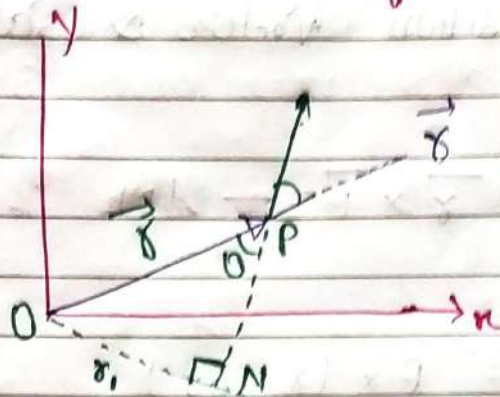 y
r⃗
r⃗
θ P
O
x
r₁
N